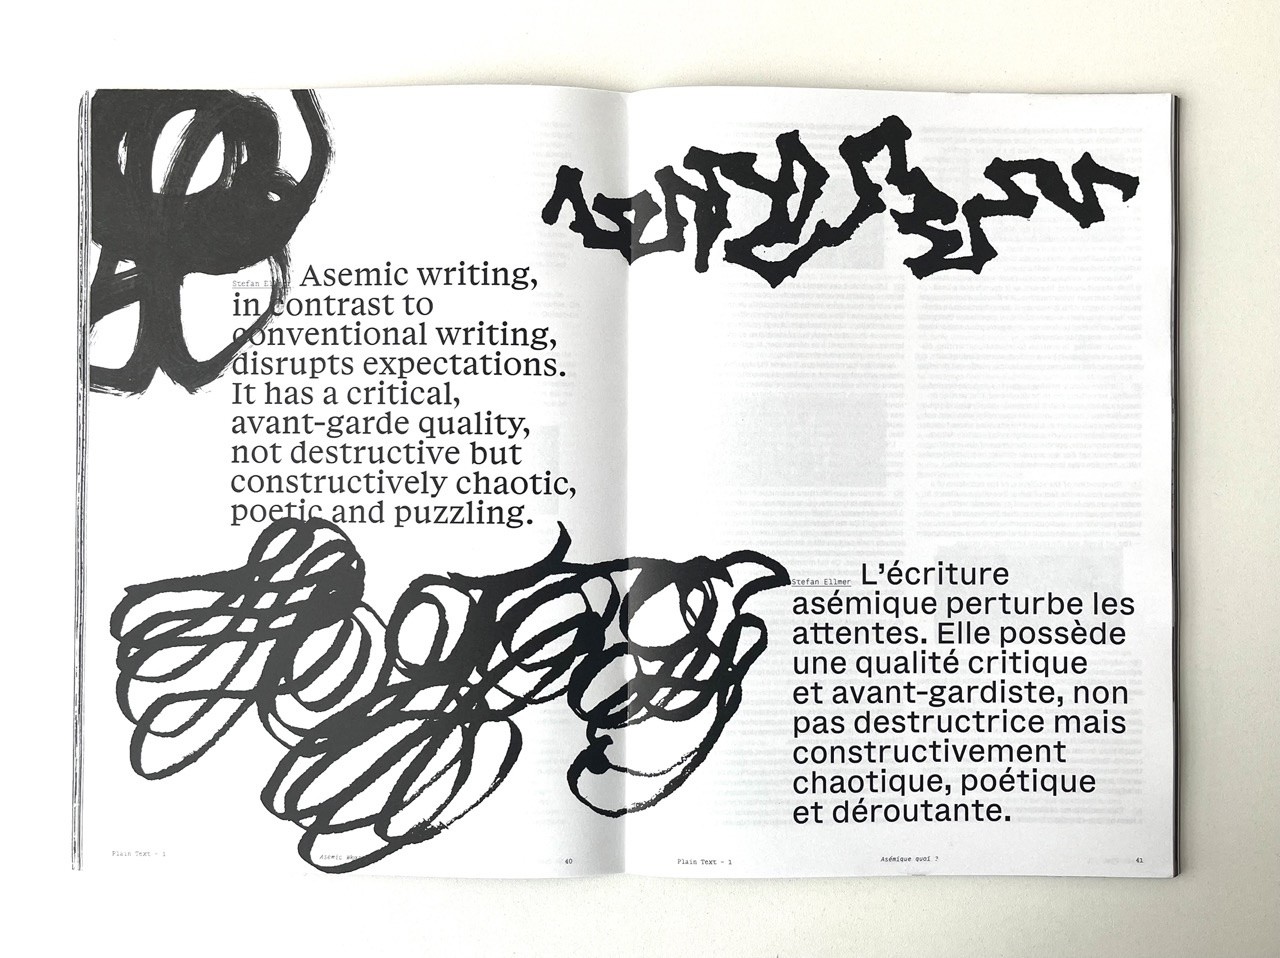 Stefan Ellmer Asemic writing,
in contrast to
conventional writing,
disrupts expectations.
It has a critical,
avant-garde quality,
not destructive but
constructively chaotic,
poetic and puzzling.
Plain Text – 1
Asemic
40
Stefan Ellmer L’écriture
asémique perturbe les
attentes. Elle possède
une qualité critique
et avant-gardiste, non
pas destructrice mais
constructivement
chaotique, poétique
et déroutante.
Plain Text – 1
Asémique quoi ?
41